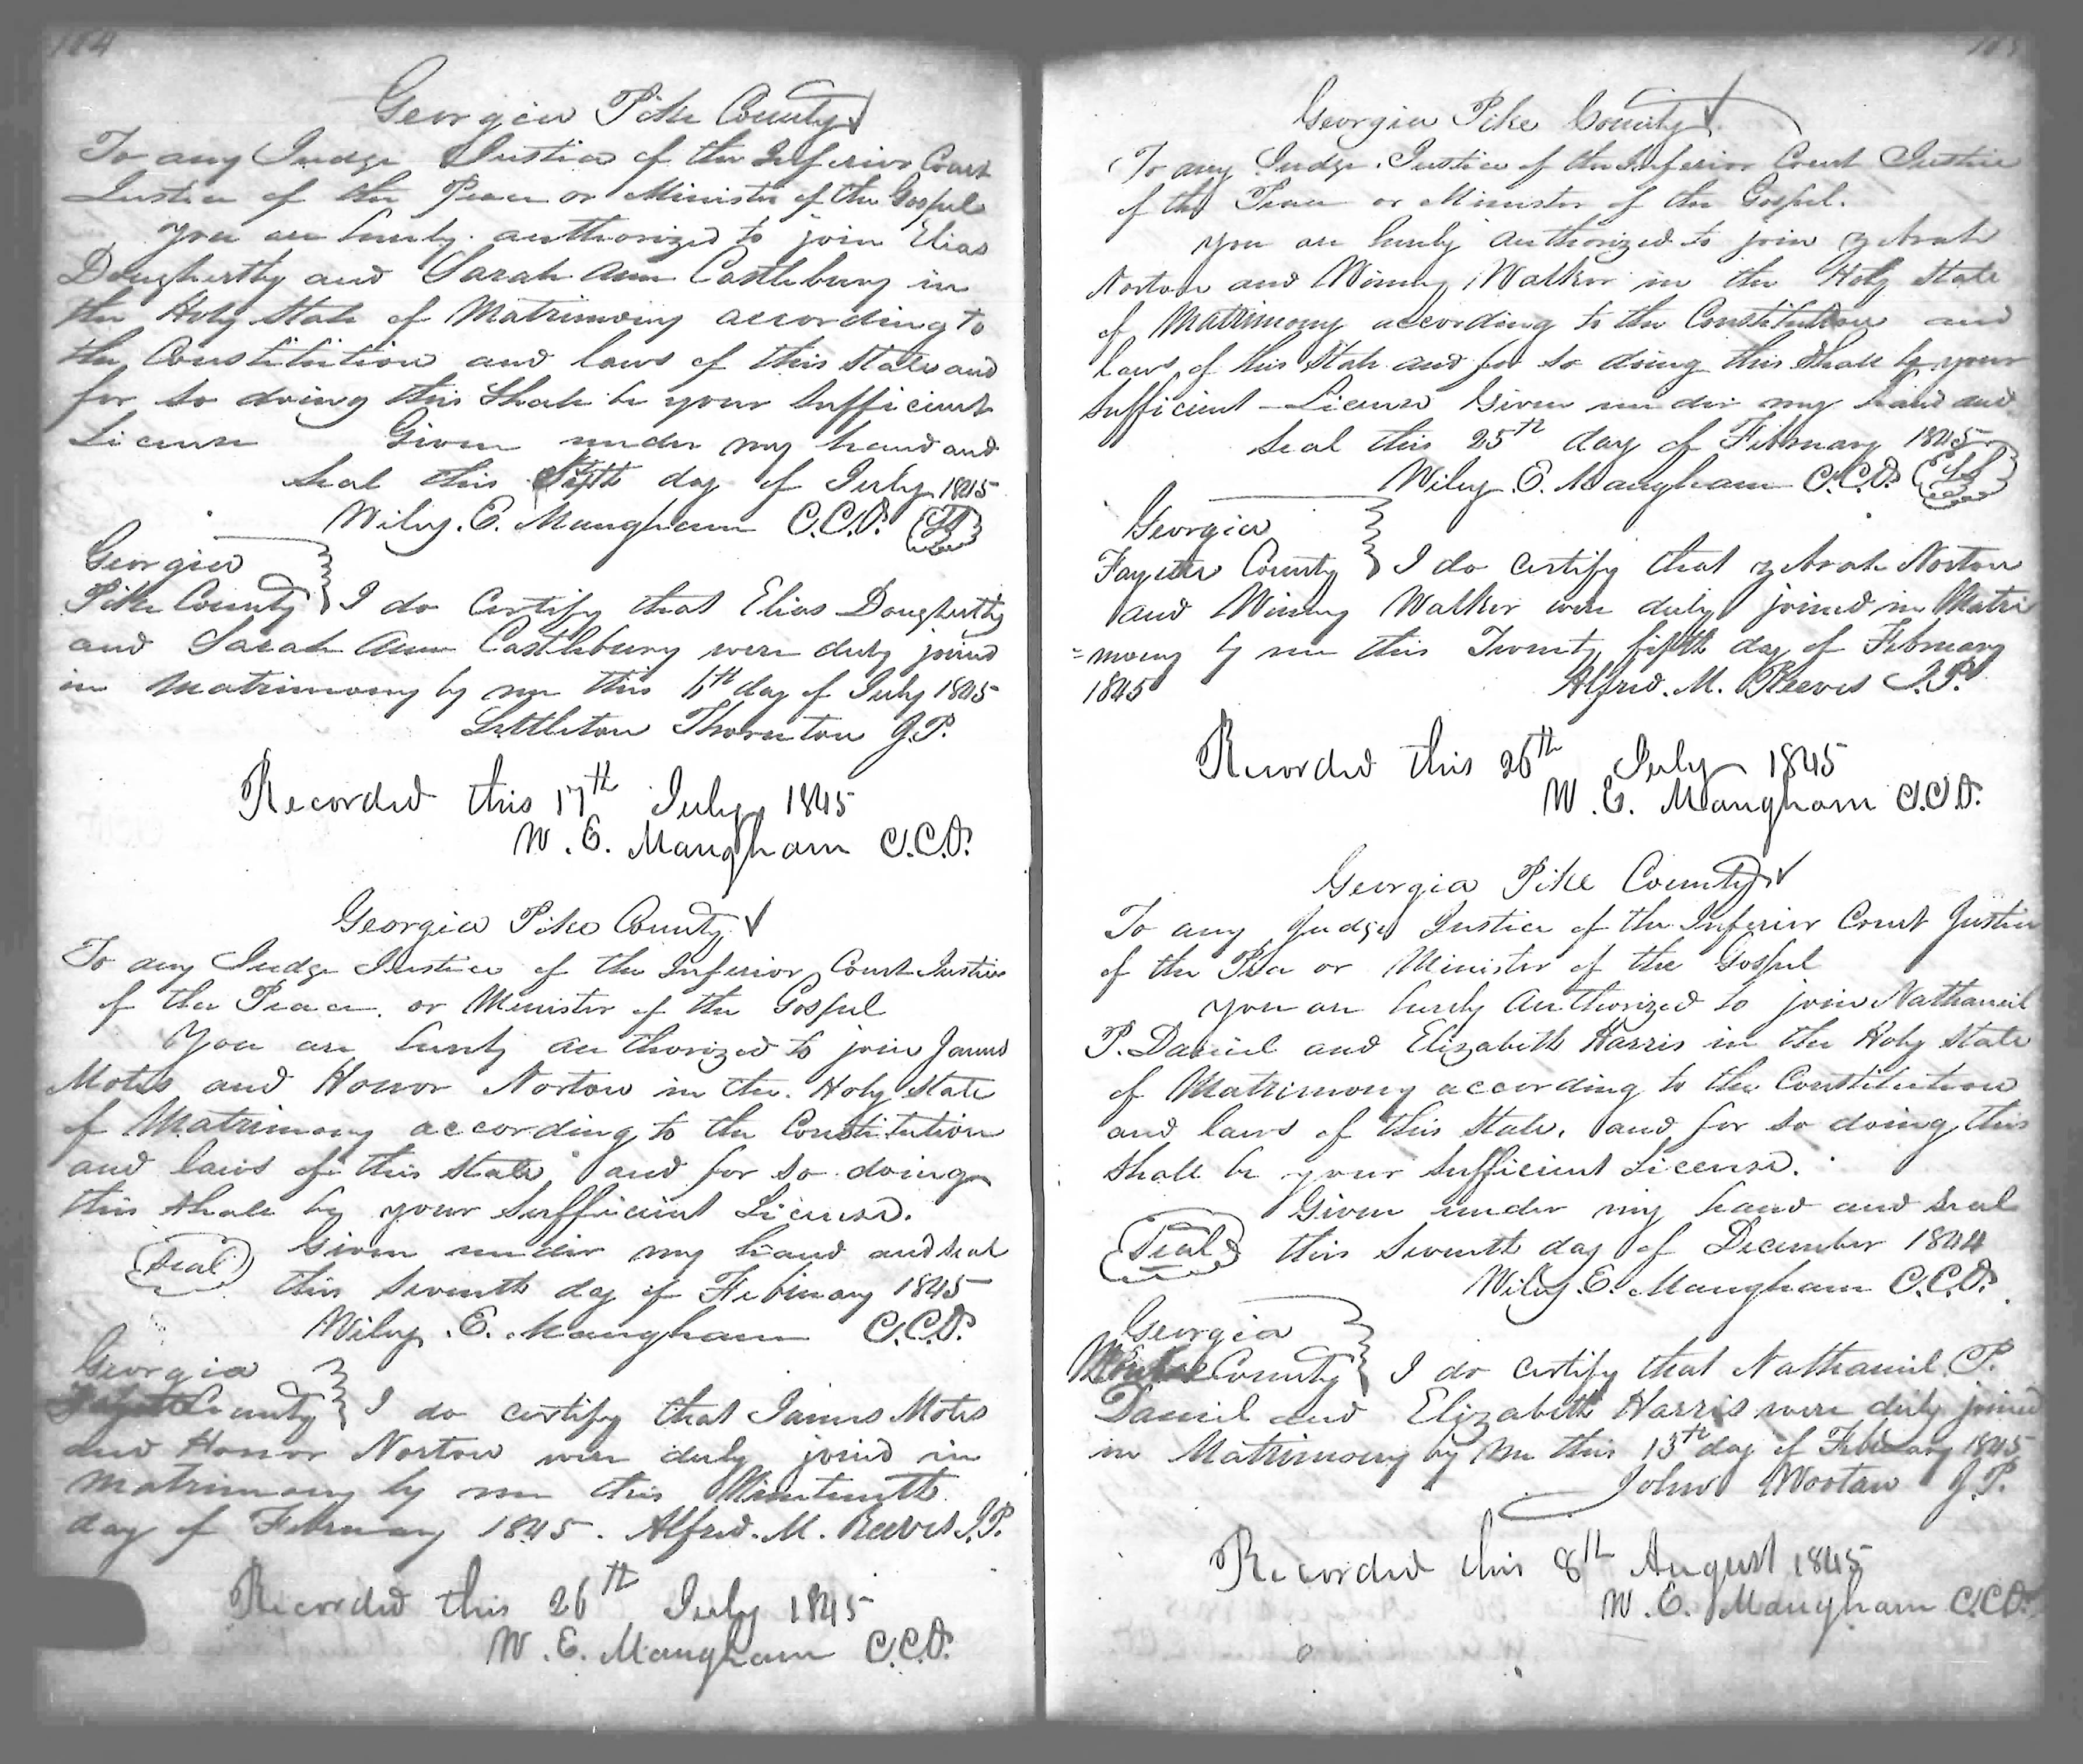 184
Georgia Pike County
To any Judge Justice of the Inferior Court
Justice of the Peace or Minister of the Gospel
You are hereby authorized to join Elias
Doughertty and Sarah Ann Castlebury in
the Holy State of Matrimony according to
the Constitution and laws of this State and
for so doing this Shall be your Sufficient
License Given under my hand and
Seal this day of July 1845
Wiley. E. Mangham C.C.O.
Georgia
Pike County } I do Certify that Elias Doughertty
and Sarah Ann Castlebury were duly joined
in Matrimony by me this 6th day of July 1845
Littleton Thornton J.P.
Recorded this 17th July 1845
W. E. Mangham C.C.O.
Georgia Pike County
To any Judge Justice of the Inferior Court Justice
of the Peace or Minister of the Gospel
You are hereby authorized to join James
Motes and Honor Norton in the Holy State
of Matrimony according to the Constitution
and laws of this State and for so doing
this shall be your Sufficient License.
Seal Given under my hand and seal
this Seventh day of February 1845
Wiley. E. Mangham C.C.O.
Georgia
County } I do certify that James Motes
and Honor Norton were duly joined in
Matrimony by me this Nineteenth
day of February 1845. Alfred. M. Reeves J.P.
Recorded this 26th July 1845
W. E. Mangham C.C.O.
Georgia Pike County
To any Judge Justice of the Inferior Court Justice
of the Peace or Minister of the Gospel.
You are hereby authorized to join
Norton and Winney Walker in the Holy State
of Matrimony according to the Constitution and
laws of this State and for so doing this Shall be your
Sufficient License Given under my hand and
Seal this 25th day of February 1845
Wiley. E. Mangham C.C.O.
Georgia
Fayette County } I do certify that Norton
and Winney Walker were duly joined in Matri
=mony by me this Twenty fifth day of February
1845 Alfred. M. Reeves J.P.
Recorded this 26th July 1845
W. E. Mangham C.C.O.
Georgia Pike County
To any Judge Justice of the Inferior Court Justice
of the Peace or Minister of the Gospel
You are hereby authorized to join Nathaniel
P. Daniel and Elizabeth Harris in the Holy State
of Matrimony according to the Constitution
and laws of this State, and for so doing this
Shall be your Sufficient License.
Given under my hand and seal
Seal this Seventh day of December 1844
Wiley. E. Mangham C.C.O.
Georgia
County } I do certify that Nathaniel P.
Daniel and Elizabeth Harris were duly joined
in Matrimony by me this 13th day of February 1845
John Wootan J.P.
Recorded this 8th August 1845
W. E. Mangham C.C.O.